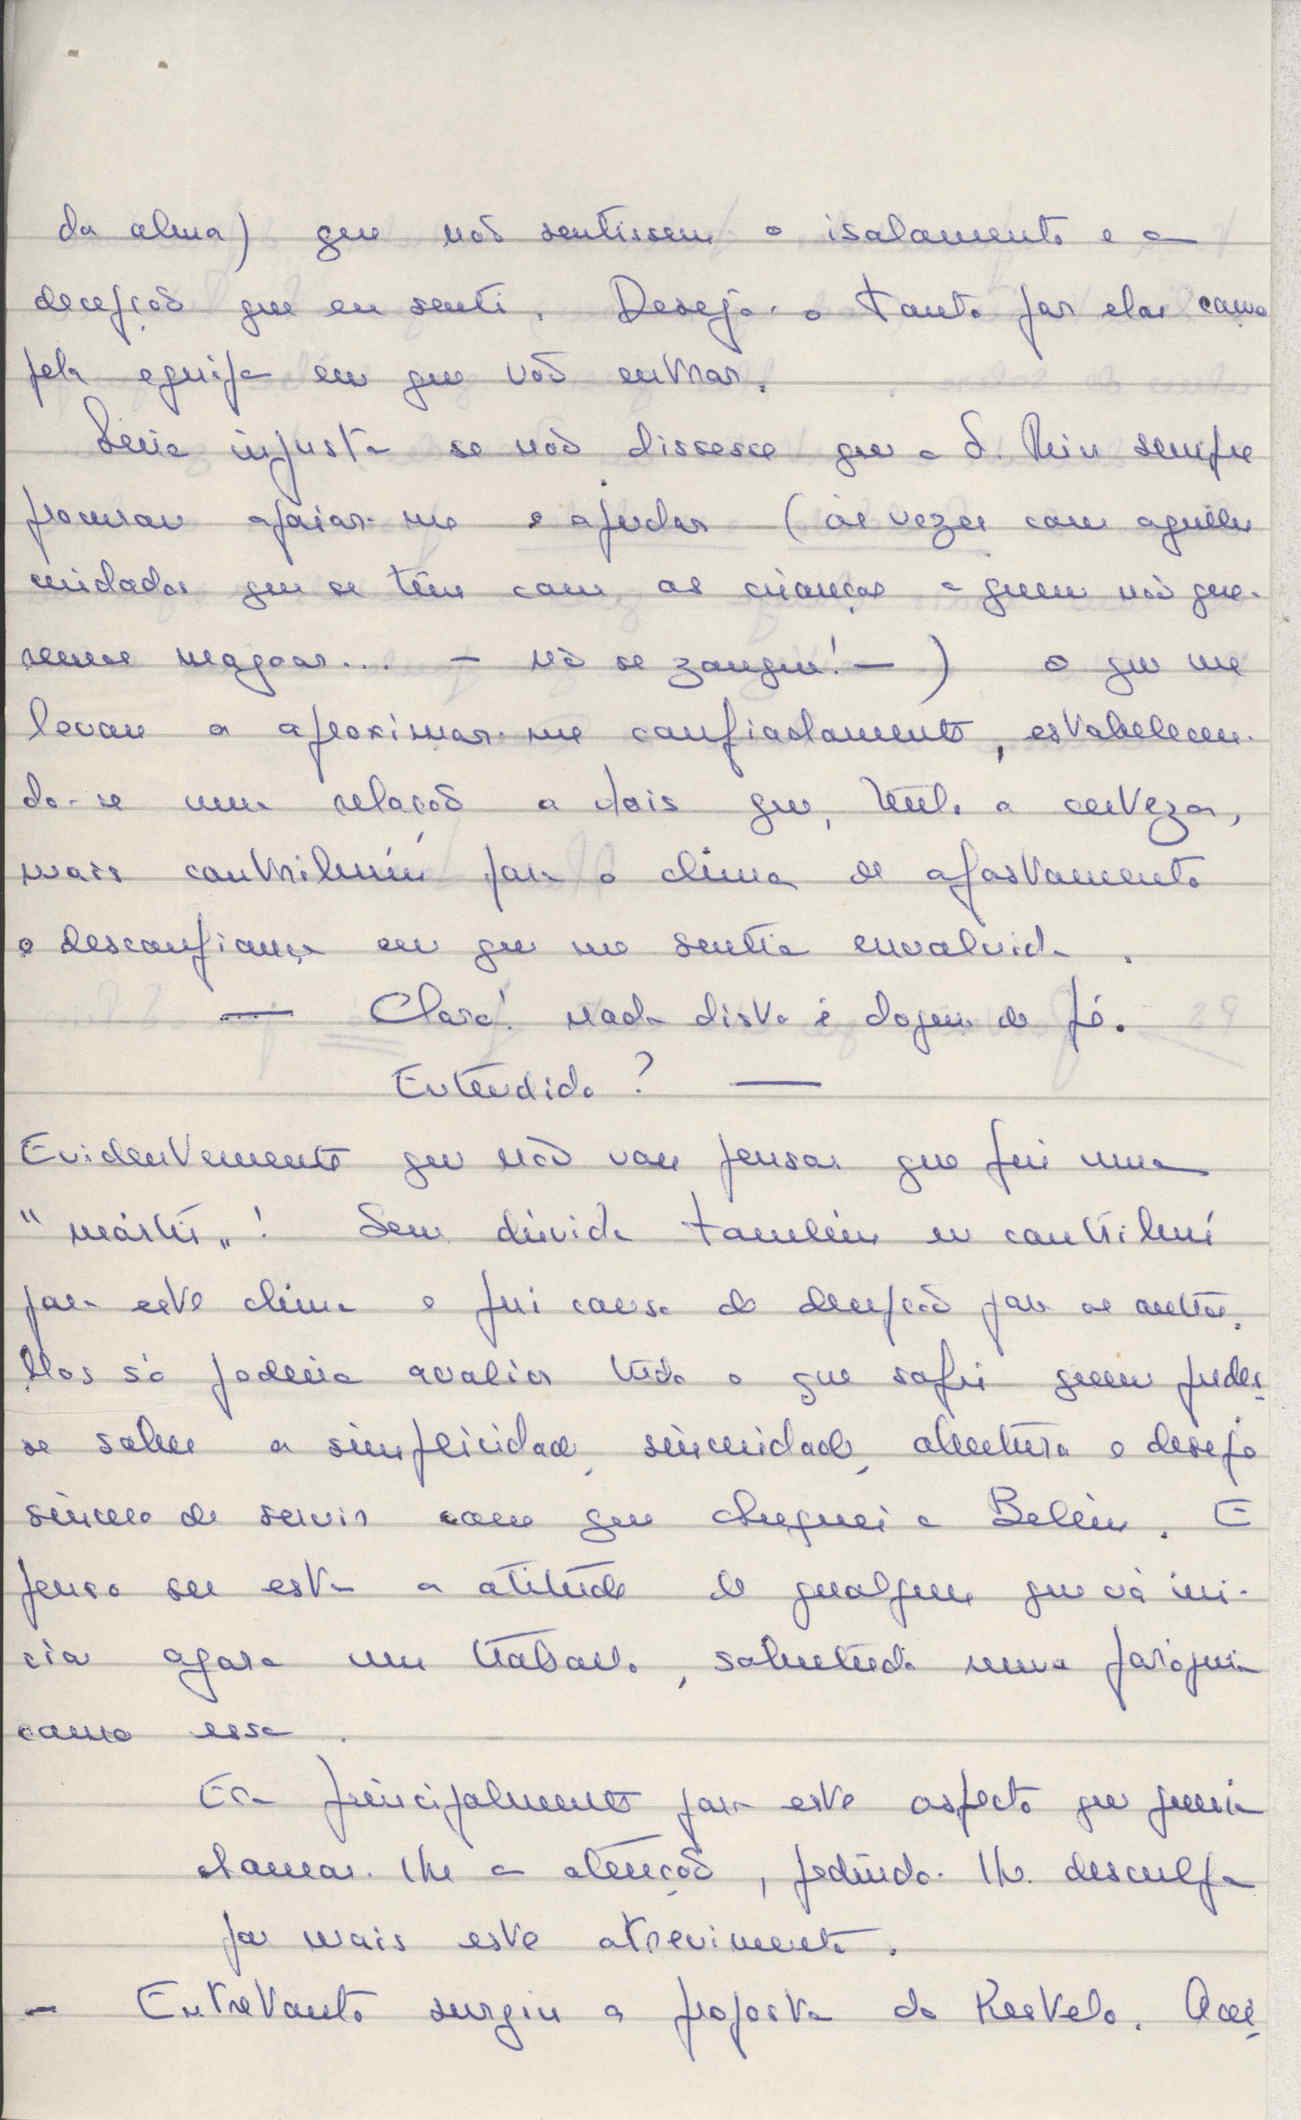 da alma) que não sentissem o isolamento e a
deceção que eu senti. Desejo-o tanto por elas como
pela equipa em que vão entrar.
Seria injusta se não dissesse que a S. sempre
procurou apoiar-me e ajudar (às vezes com aqueles
cuidados que se têm com as crianças a quem não que-
remos magoar... - não se zangue! -) o que me
levou a aproximar-me confiadamente, estabelecen-
do-se uma relação a dois que, tenho a certeza,
mais contribuíu para o clima de afastamento
e desconfiança em que me sentia envolvida.
— Claro! Nada disto é dogma de fé.
Entendido? —
Evidentemente que não vou pensar que fui uma
"mártir"! Sem dúvida também eu contribuí
para este clima e fui causa de deceção para as outras.
Mas só poderia avaliar tudo o que sofri quem pudes-
se saber a simplicidade, sinceridade, abertura e desejo
sincero de servir com que cheguei a Belém. E
penso ser esta a atitude de qualquer que vá ini-
ciar agora um trabalho, sobretudo numa paróquia
como essa.
Era principalmente para este aspecto que queria
chamar-lhe a atenção, pedindo-lhe desculpa
por mais este atrevimento.
- Entretanto surgiu a proposta do Restelo. Acei-